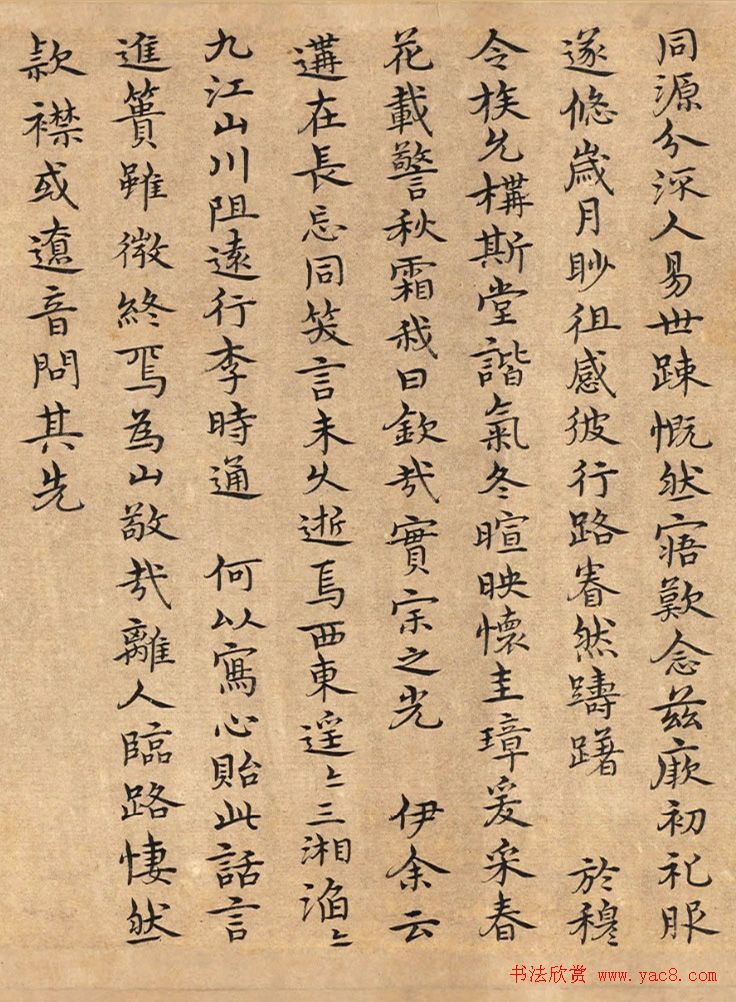 同源分流人易世踈慨然寤歎念茲厥初礼服
遂悠歲月眇徂感彼行路眷然躊躇 於穆
令族允構斯堂諧氣冬暄映懷圭璋爰采春
花載警秋霜我曰欽哉實宗之光 伊余云
遘在長忘同笑言未久逝焉西東遥〻三湘滔〻
九江山川阻遠行李時通 何以寫心貽此話言
進簣雖微終焉為山敬哉離人臨路悽然
款襟或遼音問其先
书法欣赏 www.yac8.com